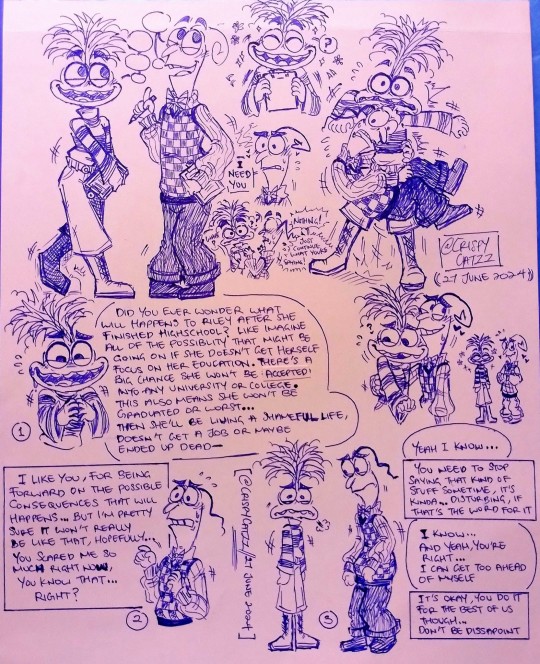 ?
I
NEED
YOU
NOTHING!
JUST
CONTINUE
WHAT YOU'RE
SAYING!
@CRISPY
CATZZ
((27 JUNE 2024))
DID YOU EVER WONDER WHAT
WILL HAPPENS TO RILEY AFTER SHE
FINISHED HIGHSCHOOL? LIKE IMAGINE
ALL OF THE POSSIBILITY THAT MIGHT BE
GOING ON IF SHE DOESN'T GET HERSELF
FOCUS ON HER EDUCATION. THERE'S A
BIG CHANCE SHE WON'T BE ACCEPTED
INTO ANY UNIVERSITY OR COLLEGE.
THIS ALSO MEANS SHE WON'T BE
GRADUATED OR WORST...
THEN SHE'LL BE LIVING A SHAMEFUL LIFE,
DOESN'T GET A JOB OR MAYBE
ENDED UP DEAD—
1
? !
I LIKE YOU, FOR BEING
FORWARD ON THE POSSIBLE
CONSEQUENCES THAT WILL
HAPPENS... BUT I'M PRETTY
SURE IT WON'T REALLY
BE LIKE THAT, HOPEFULLY...
YOU SCARED ME SO
MUCH RIGHT NOW,
YOU KNOW THAT...
RIGHT?
2
[@CRISPYCATZZ/27 JUNE 2024]
3
YEAH I KNOW...
YOU NEED TO STOP
SAYING THAT KIND OF
STUFF SOMETIME, IT'S
KINDA.. DISTURBING, IF
THAT'S THE WORD FOR IT
I KNOW...
AND YEAH, YOU'RE
RIGHT...
I CAN GET TOO AHEAD
OF MYSELF
IT'S OKAY, YOU DO IT
FOR THE BEST OF US
THOUGH...
DON'T BE DISSAPOINT